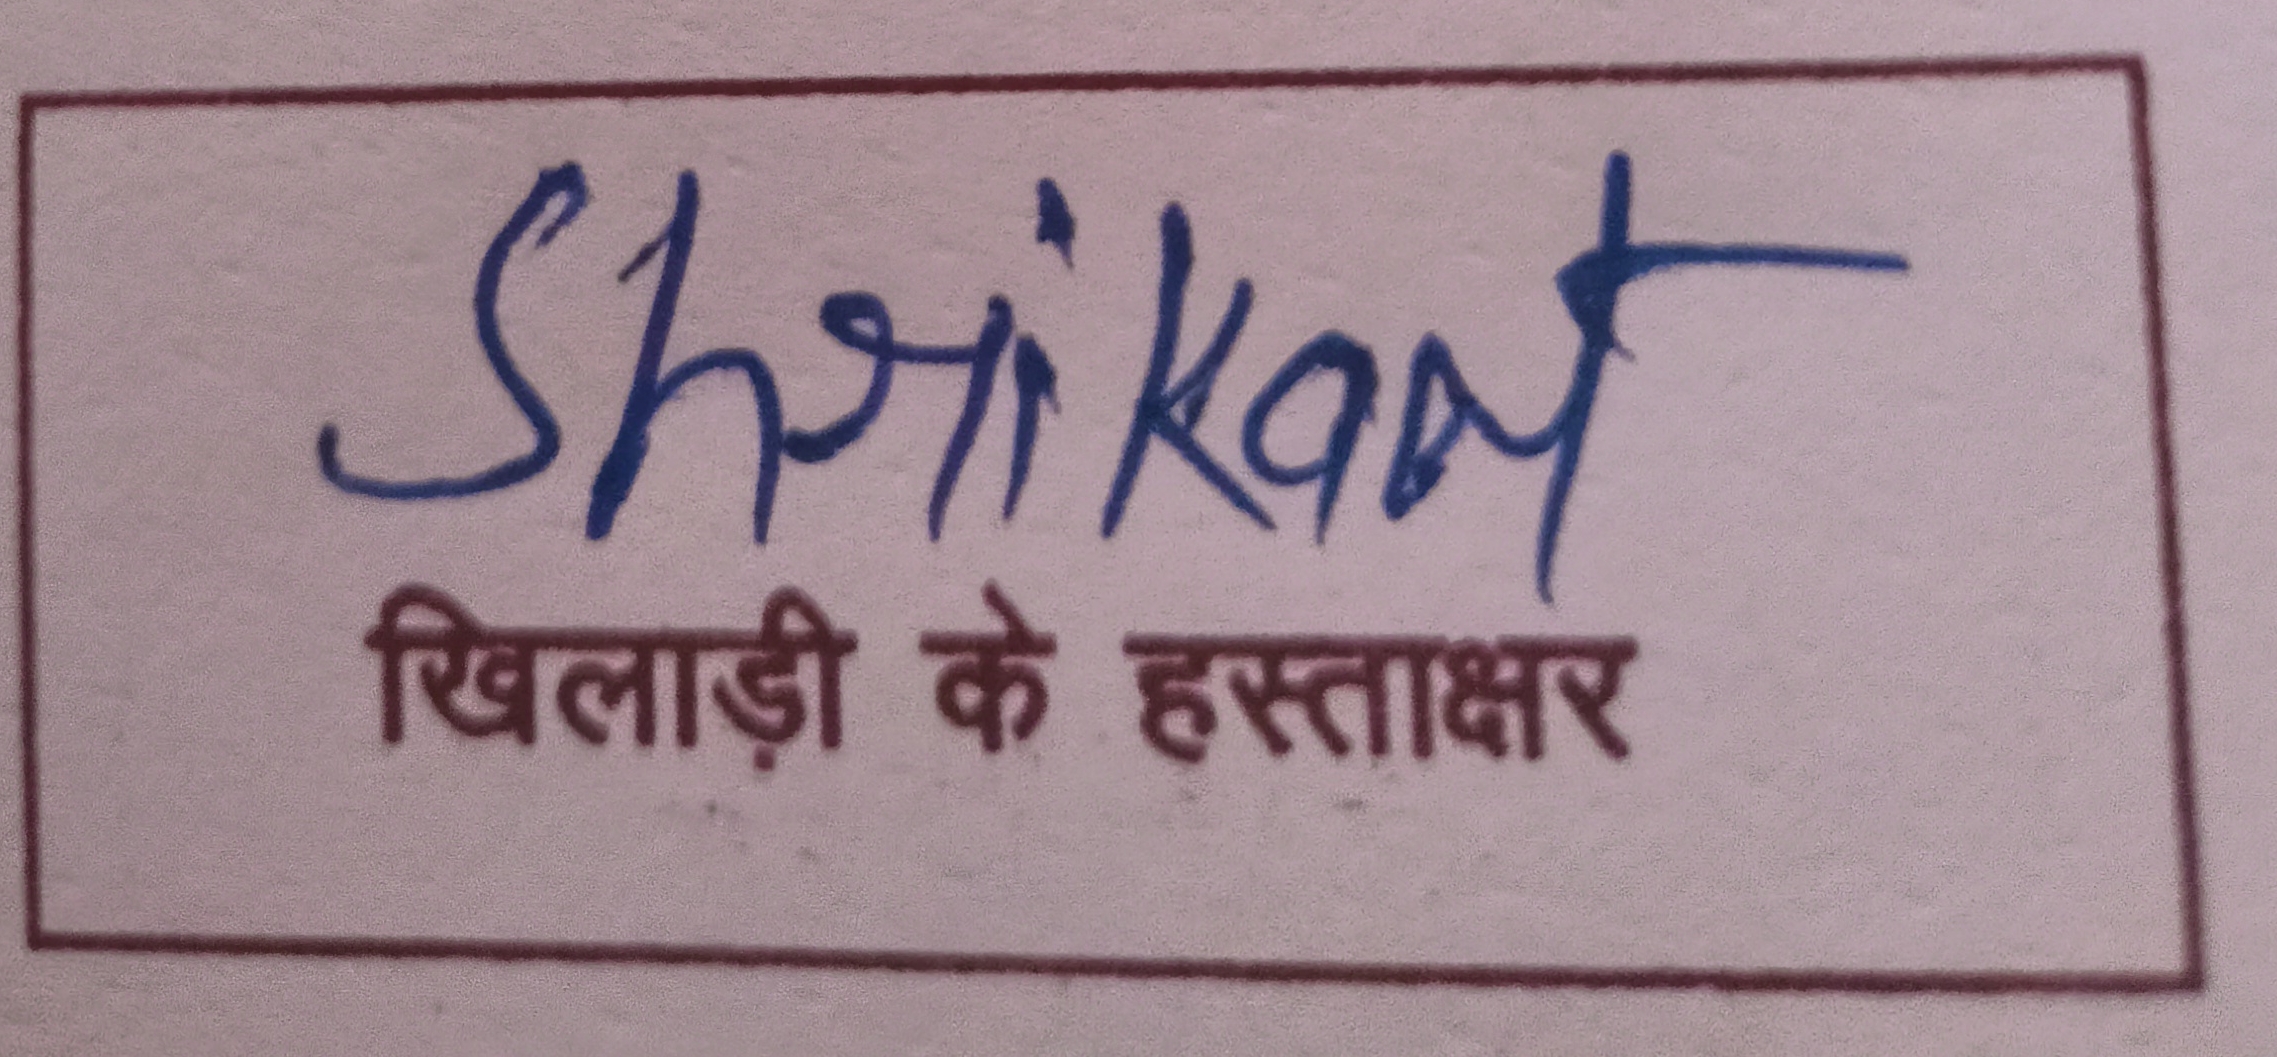 Shrikant
खिलाड़ी के हस्ताक्षर